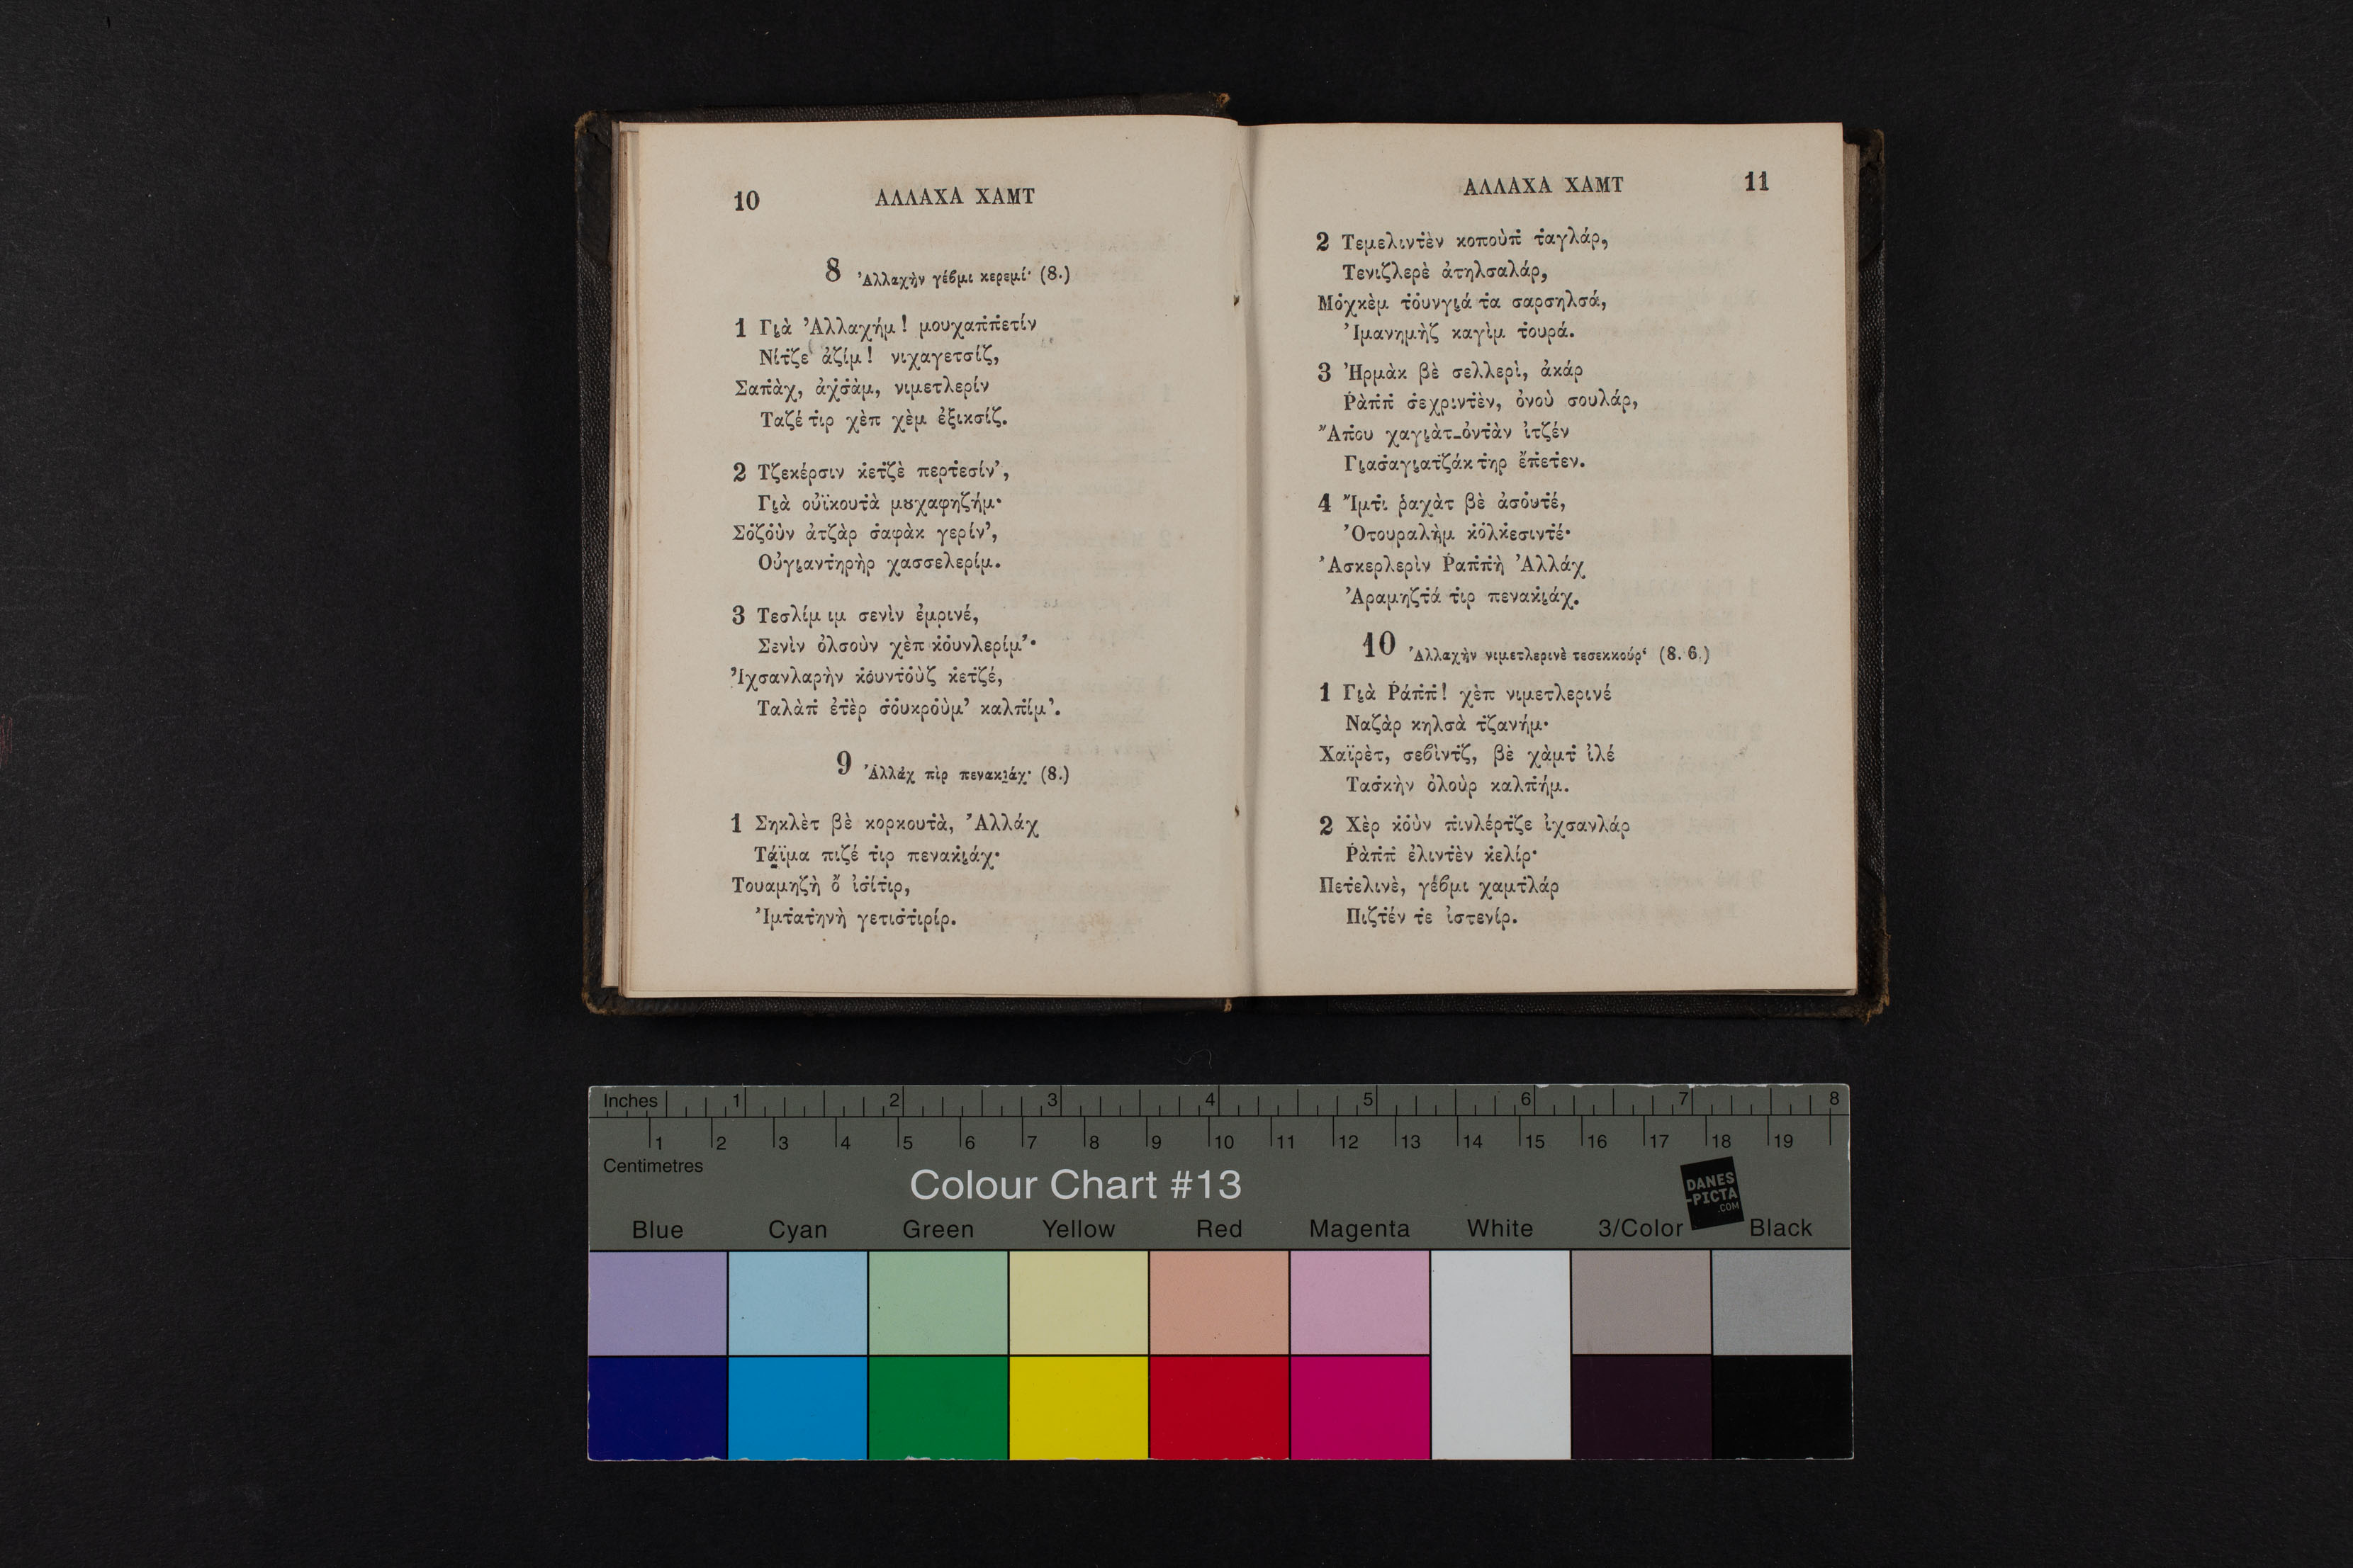 10 ΑΛΛΑΧΑ ΧΑΜΤ
8 Ἀλλαχὴν γέϐμι κερεμί· (8.)
1 Γι̰ὰ Ἀλλαχήμ! μουχαπ̇π̇ετίν
Νίτ̇ζε ἀζίμ! νιχαγετσίζ,
Σαπ̇ὰχ, ἀχσ̇ὰμ, νιμετλερίν
Ταζέ τ̇ιρ χὲπ χὲμ ἐξικσίζ.
2 Τζεκέρσιν κ̇ετ̇ζὲ περτ̇εσίν’,
Γι̰ὰ οὐϊκουτ̇ὰ μȣχαφηζήμ·
Σό̇ζο̇ὺν ἀτζὰρ σ̇αφὰκ γερίν’,
Οὐγι̰αντ̇ηρὴρ χασσελερίμ.
3 Τεσλίμ ιμ σενὶν ἐμρινέ,
Σενὶν ὀλσοὺν χὲπ κ̇ο̇υνλερίμ’·
Ἰχσανλαρὴν κ̇ο̇υντ̇ο̇ὺζ κ̇ετ̇ζέ,
Ταλὰπ̇ ἐτ̇ὲρ σ̇ο̇υκρο̇ὺμ’ καλπ̇ίμ’.
9 Ἀλλὰχ πὶρ πενακι̰άχ· (8.)
1 Σηκλὲτ βὲ κορκουτ̇ὰ, Ἀλλάχ
Τά̤ϊμα πιζέ τ̇ιρ πενακ̇ι̰άχ·
Τουαμηζὴ ὂ ἰσ̇ίτ̇ιρ,
Ἰμτ̇ατ̇ηνὴ γετισ̇τ̇ιρίρ.
ΑΛΛΑΧΑ ΧΑΜΤ 11
2 Τεμελιντ̇ὲν κοποὺπ̇ τ̇αγλάρ,
Τενιζλερὲ ἀτηλσαλάρ,
Μὸχκὲμ τ̇ο̇υνγι̰ά τ̇α σαρσηλσά,
Ἰμανημὴζ καγὶμ τ̇ουρά.
3 Ἠρμὰκ βὲ σελλερὶ, ἀκάρ
Ῥὰπ̇π̇ σ̇εχριντ̇ὲν, ὀνοὺ σουλάρ,
Ἄπ̇ου χαγι̰ὰτ-ὀντ̇ὰν ἰτζέν
Γι̰ασ̇αγι̰ατ̇ζάκ τ̇ηρ ἔπ̇ετ̇εν.
4 Ἴμτ̇ι ῥαχὰτ βὲ ἀσο̇υτ̇έ,
Ὀτουραλὴμ κ̇ο̇λκ̇εσιντ̇έ·
Ἀσκερλερὶν Ῥαπ̇π̇ὴ Ἀλλάχ
Ἀραμηζτ̇ά τ̇ιρ πενακ̇ι̰άχ.
10 Ἀλλαχὴν νιμετλερινὲ τεσεκκούρ· (8. 6.)
1 Γι̰ὰ Ῥάπ̇π̇! χὲπ νιμετλερινέ
Ναζὰρ κηλσὰ τ̇ζανήμ·
Χαϊρὲτ, σεϐὶντ̇ζ, βὲ χὰμτ̇ ἰλέ
Τασ̇κὴν ὀλοὺρ καλπ̇ήμ.
2 Χὲρ κ̇ο̇ὺν π̇ινλέρτ̇ζε ἰχσανλάρ
Ῥὰπ̇π̇ ἐλιντ̇ὲν κ̇ελίρ·
Πετ̇ελινὲ, γέϐμι χαμτ̇λάρ
Πιζτ̇έν τ̇ε ἰστενίρ.
Inches 1 2 3 4 5 6 7 8
1 2 3 4 5 6 7 8 9 10 11 12 13 14 15 16 17 18 19
Centimetres
Colour Chart #13
DANES
-PICTA
.COM
Blue Cyan Green Yellow Red Magenta White 3/Color Black